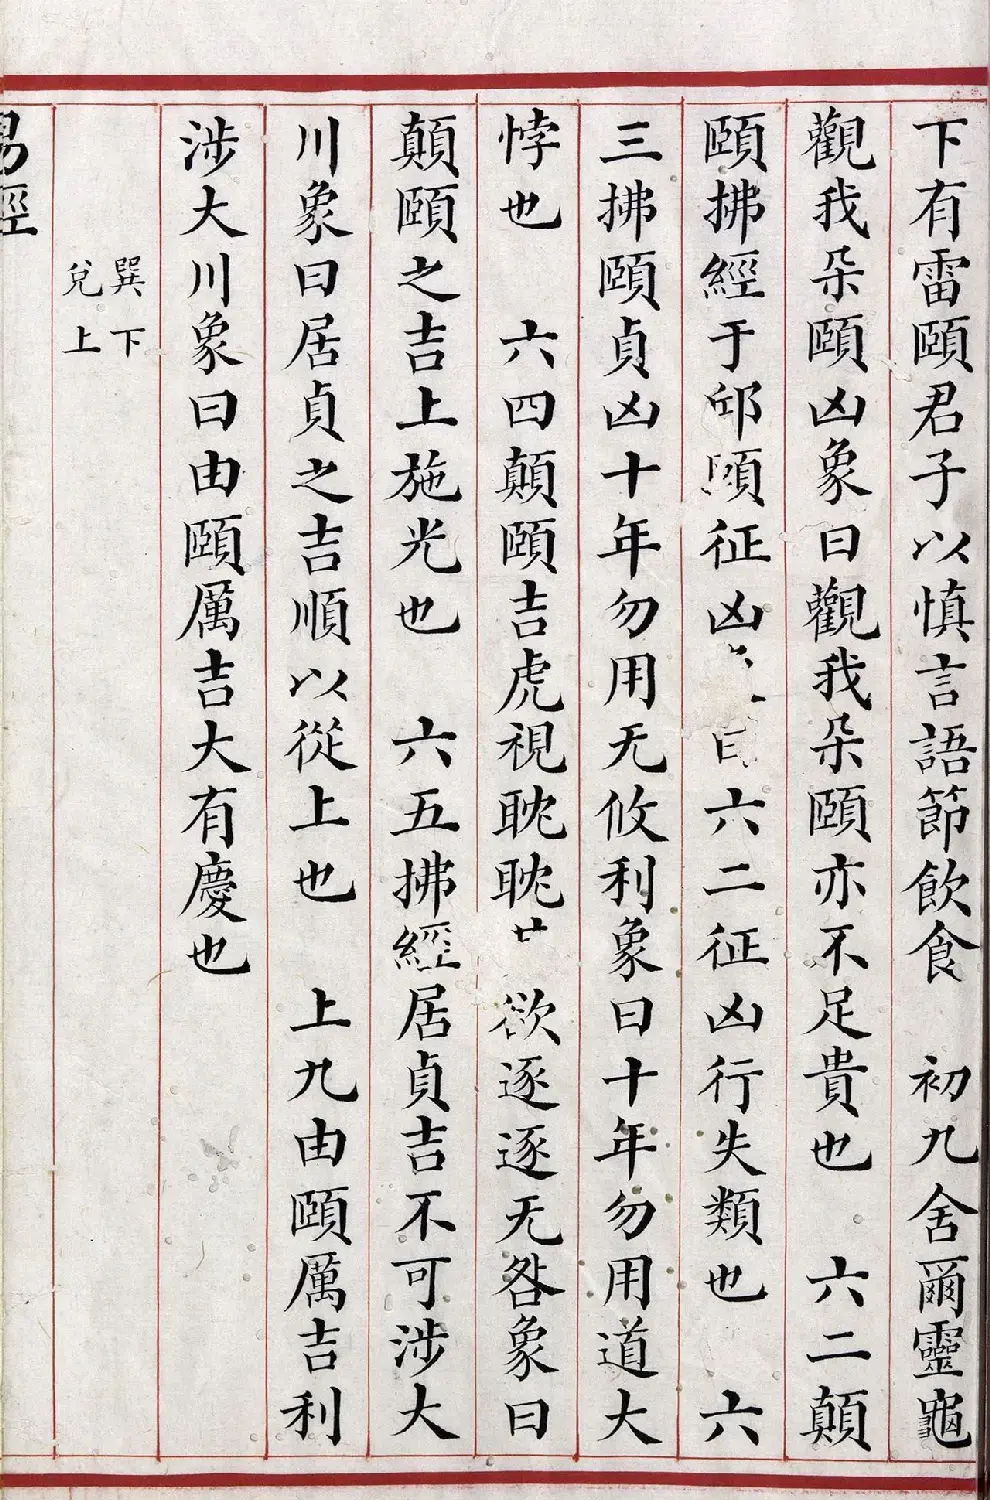 下有雷頤君子以慎言語節飲食　初九舍爾靈龜
觀我朵頤凶象曰觀我朵頤亦不足貴也　六二顛
頤拂經于邱頤征凶曰六二征凶行失類也　六
三拂頤貞凶十年勿用无攸利象曰十年勿用道大
悖也　六四顛頤吉虎視耽耽欲逐逐无咎象曰
顛頤之吉上施光也　六五拂經居貞吉不可涉大
川象曰居貞之吉順以從上也　上九由頤厲吉利
涉大川象曰由頤厲吉大有慶也
巽下
兌上
易經